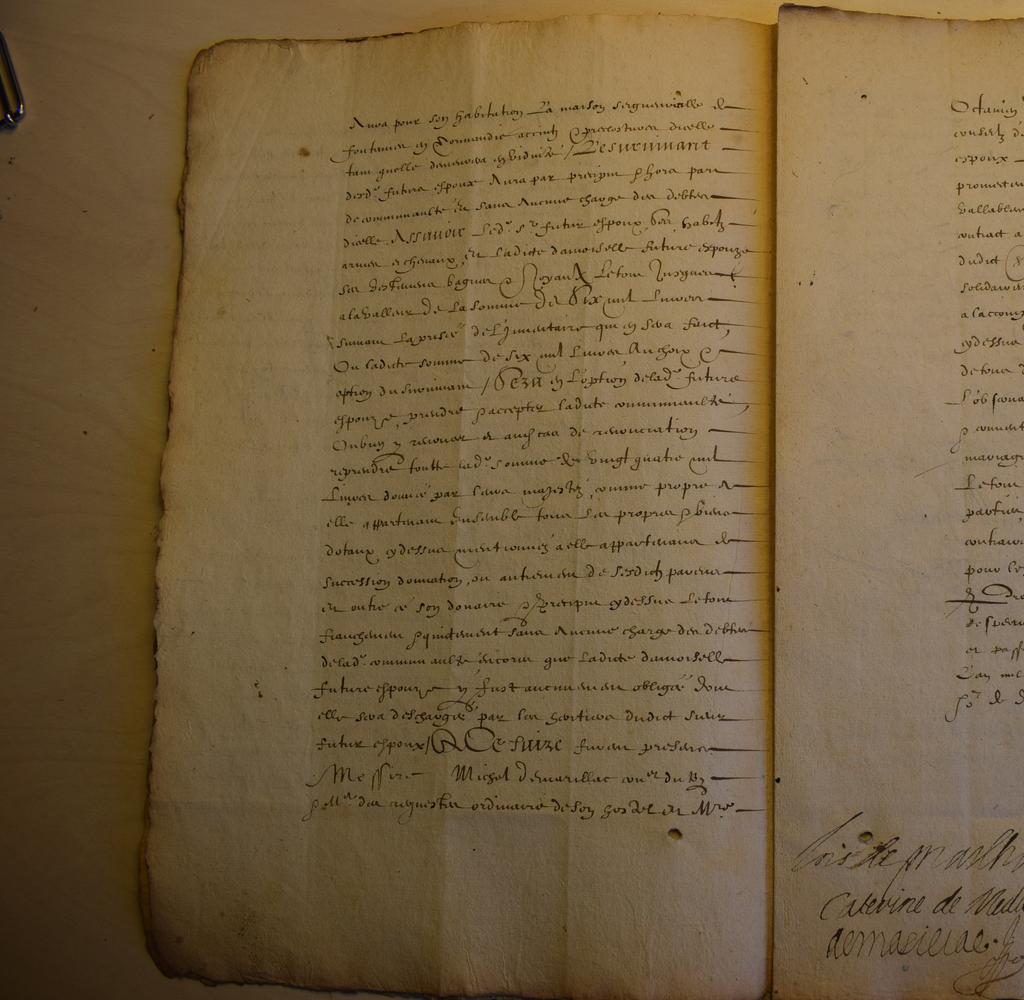 Aura pour son habitation La maison seigneurialle de
fontaines en Normandie accintz & preclostures dicelle
tant quelle demeurera en viduité / Le survivant
desd. futurs espoux Aura par preciput & hors part
de communaulté et sans Aucune charge des debtes
dicelle Assavoir Led. sr futur espoux ses habitz
armes et chevaux, et Ladicte damoiselle future espouze
ses vestemens bagues & Joyaux Le tout Jusques
a la valleur de La somme de Six mil Livres
suivant La prisée de L'inventaire qui en sera faict,
Ou ladicte somme de six mil Livres Au choix &
option du survivant / Sera en L'option de lad. future
espouze, prendre & accepter ladicte communaulté,
Ou bien y renoncer et en cas de renonciation
reprendre toutte lad. somme de vingt quatre mil
Livres donnée par leurs majestez, comme propre A
elle appartenant Ensemble tous Les propres & biens
dotaux cy dessus mentionnez a elle appartenans de
succession donnation, ou autrement de sesdictz parens
et outre ce son douaire & preciput cy dessus Le tout
franchement & quictement sans Aucune charge des debtes
de lad. communaulté encores que Ladicte damoiselle
future espouze y fust aucunement obligée dont
elle sera deschargée par les heritiers dudict sieur
futur espoux / A Ce faire furent presens
Messire Michel de marillac coner du Roy
& Mr des requestes ordinaire de son hostel et Mre
Octavien
conseil d
espoux
promect
vallable
contract a
dudict
solidaire
a laccom
cy dessus
de tous
L'obs
& convent
mariage
Le tout
parties
contrai
pour le
des
et pass
L'an mil
Lois de marilh
Caterine de Medi
de marillac